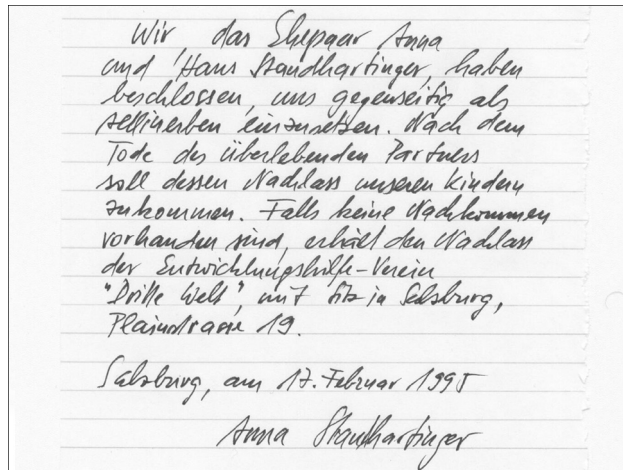 Wir, das Ehepaar Anna
und Hans Standhartinger, haben
beschlossen, uns gegenseitig als
Alleinerben einzusetzen. Nach dem
Tode des überlebenden Partners
soll dessen Nachlass unseren Kindern
zukommen. Falls keine Nachkommen
vorhanden sind, erhält den Nachlass
der Entwicklungshilfe-Verein
"Dritte Welt", mit Sitz in Salzburg,
Plainstrasse 19.
Salzburg, am 17. Februar 1995
Anna Standhartinger